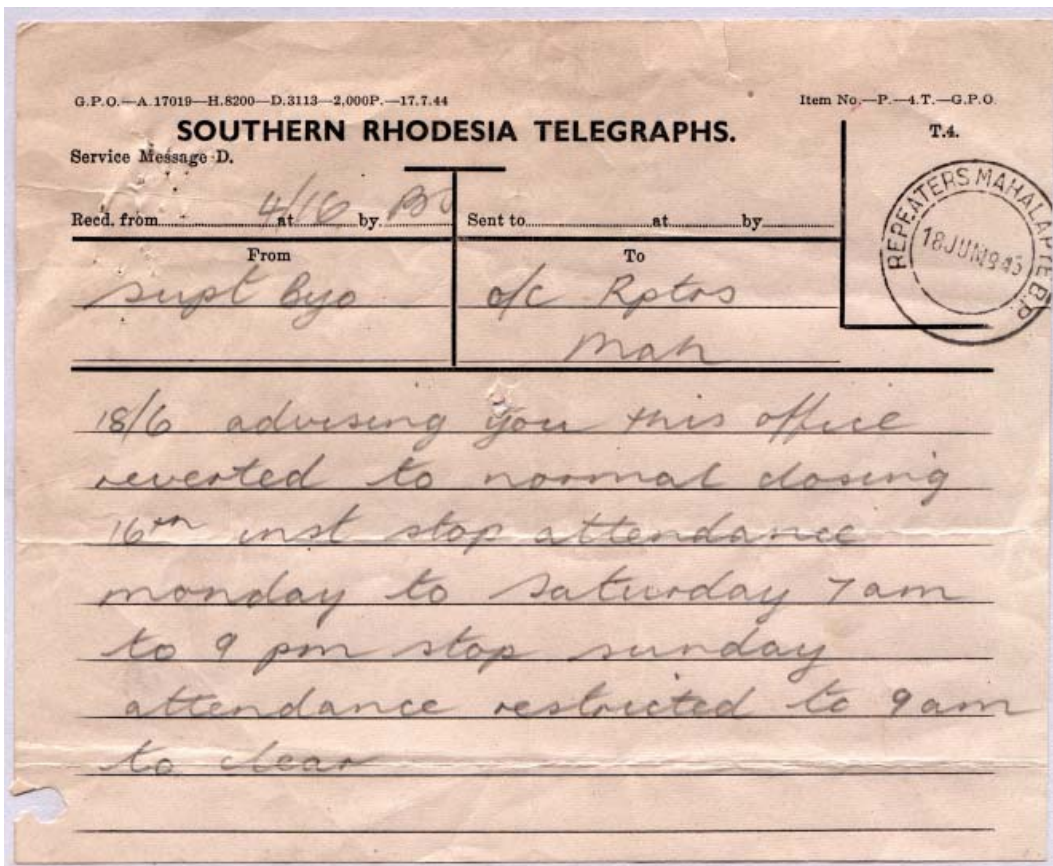 G.P.O.—A.17019—H.8200—D.3113—2,000P.—17.7.44
Item No.—P.—4.T.—G.P.O.
SOUTHERN RHODESIA TELEGRAPHS.
T.4.
Service Message D.
Recd. from 4/16 at by.
Sent to at by
REPEATERS MAHALAPYE B.P.
18 JUN 1945
From
To
Supt Byo
o/c Rptrs
Mah
18/6 advising you this office
reverted to normal closing
16th inst stop attendance
monday to Saturday 7am
to 9 pm stop sunday
attendance restricted to 9am
to clear